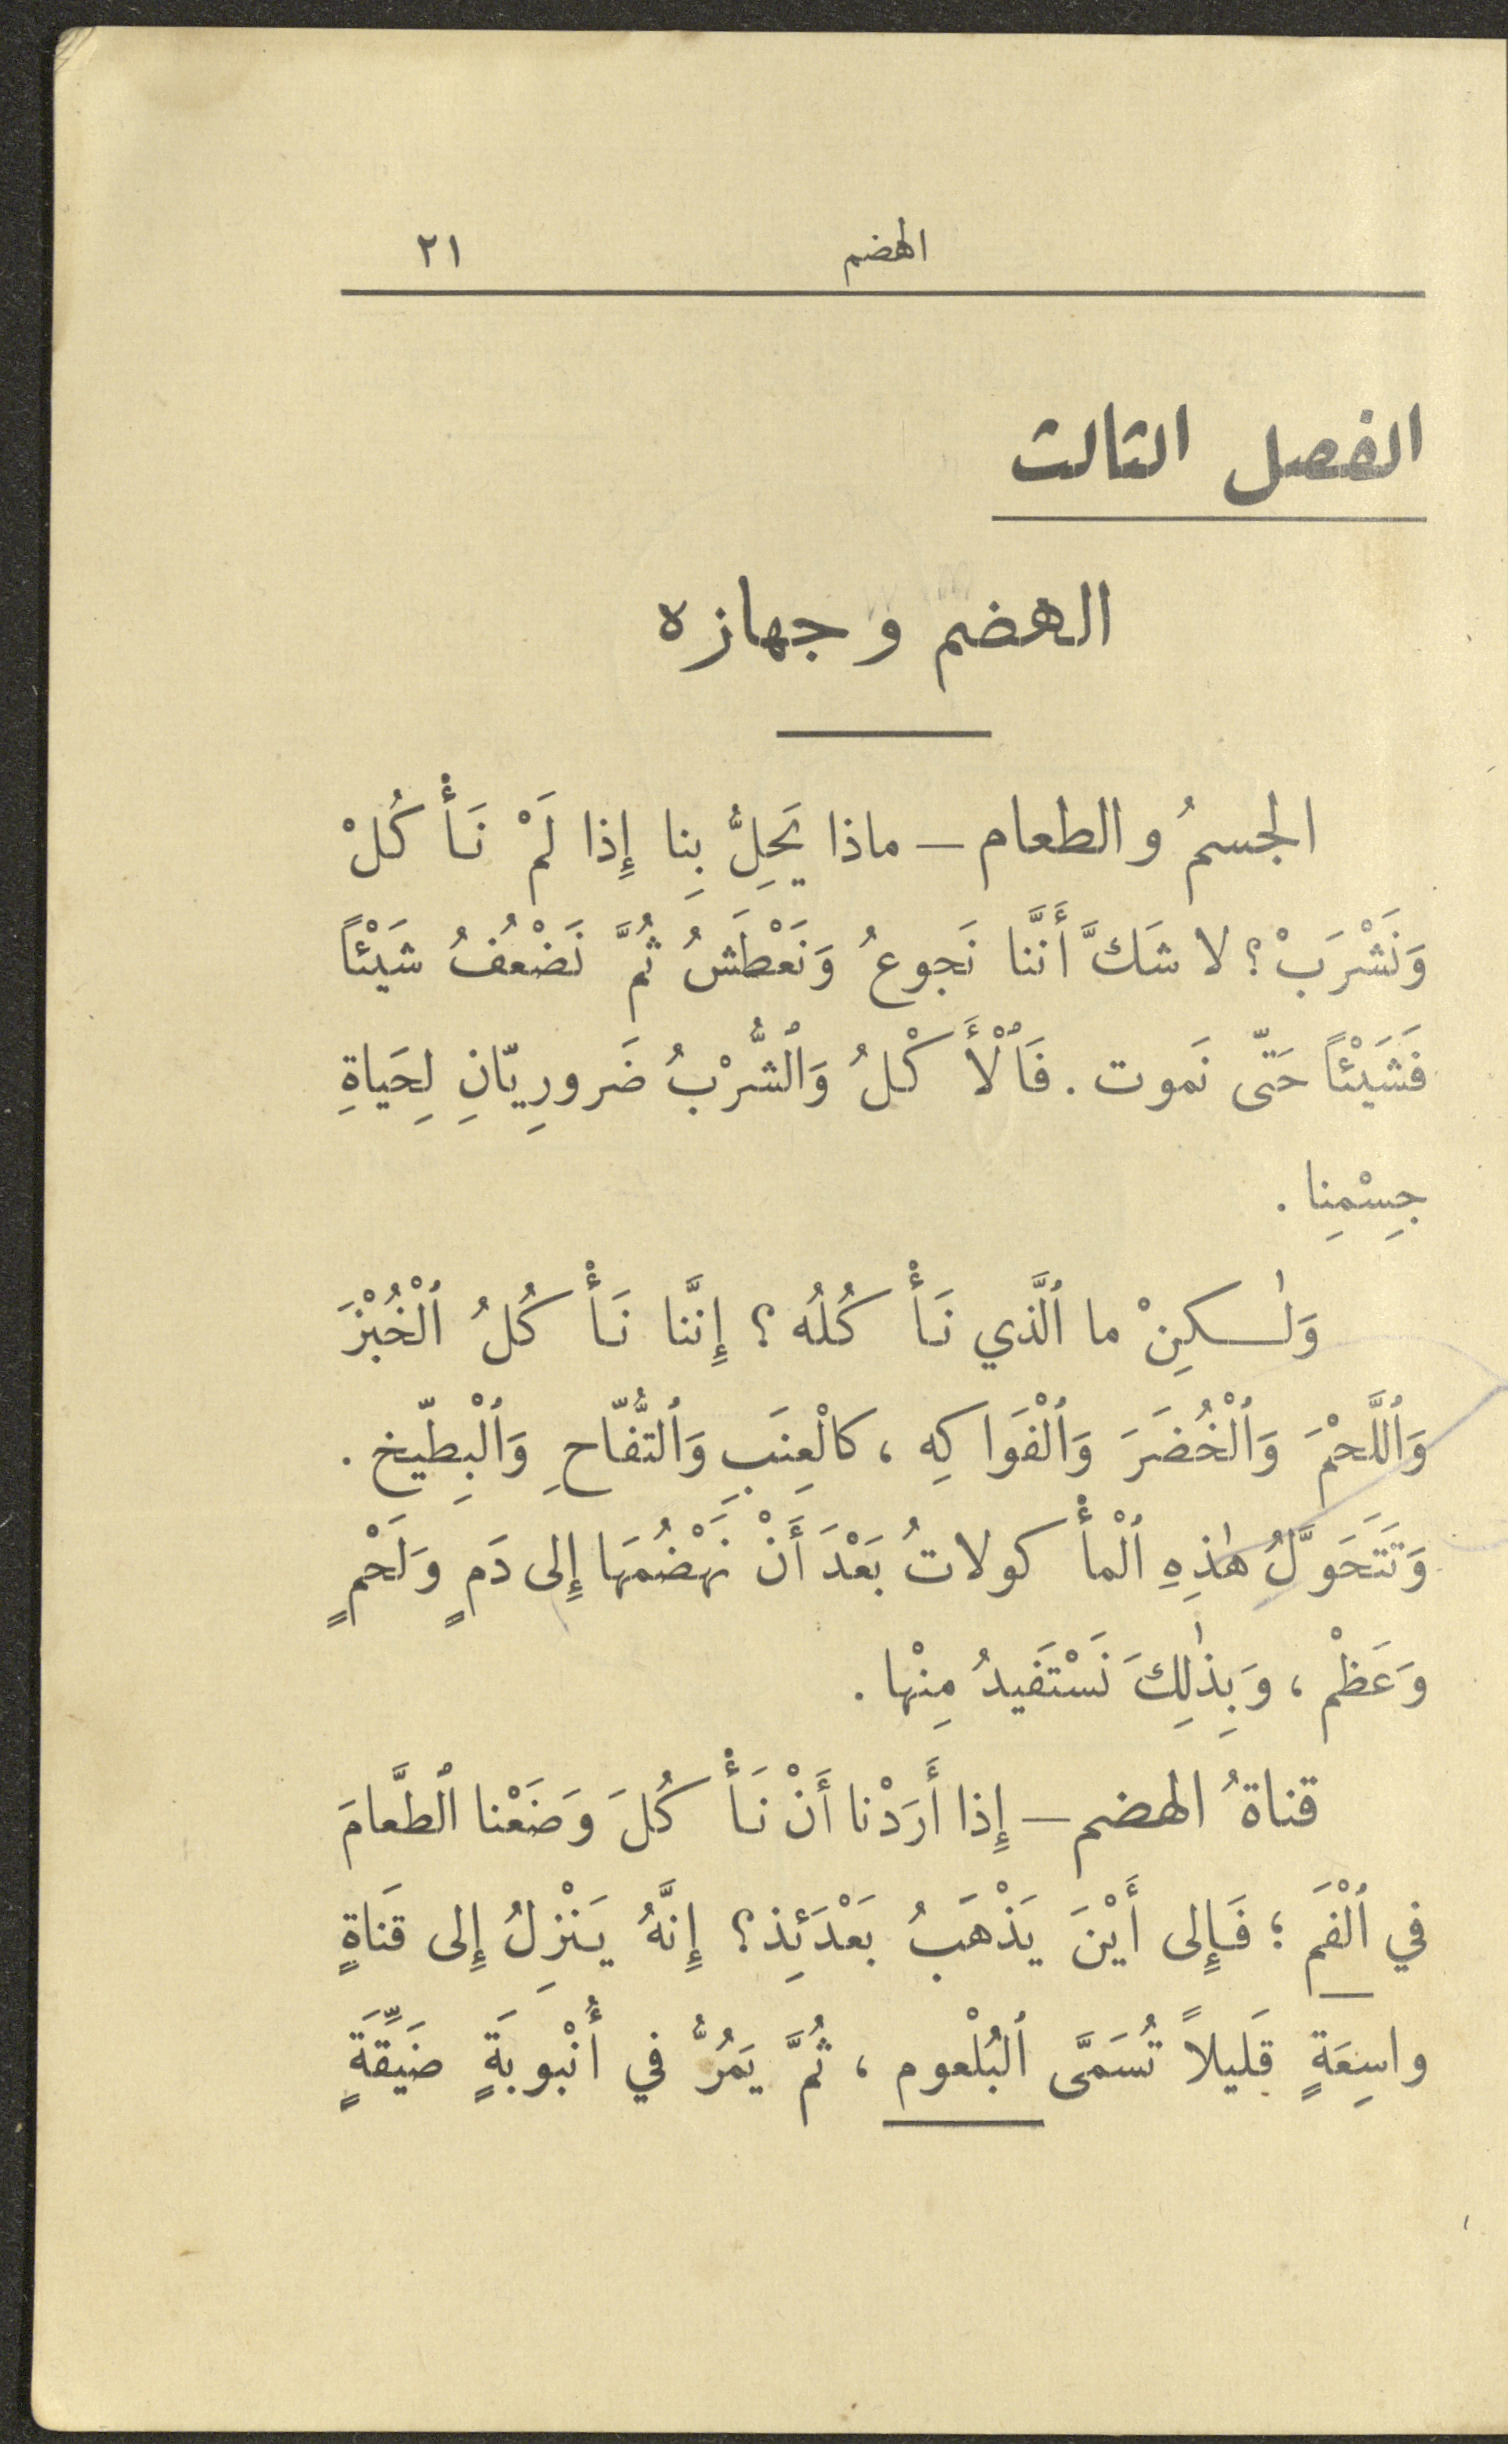 الهضم ٢١
الفصل الثالث
الهضم وجهازه
الجسمُ والطعام – ماذا يَحِلُّ بِنا إِذا لَمْ نَأْكُلْ
وَنَشْرَبْ؟ لا شَكَّ أَنَّنا نَجوعُ وَنَعْطَشُ ثُمَّ نَضْعُفُ شَيْئاً
فَشَيْئاً حَتّى نَموت. فَٱلْأَكْلُ وَٱلشُّرْبُ ضَرورِيّانِ لِحَياةِ
جِسْمِنِا.
وَلٰكِنْ ما ٱلَّذي نَأْكُلُه؟ إِنَّنا نَأْكُلُ ٱلْخُبْزَ
وَٱللَّحْمَ وَٱلْخُضَرَ وَٱلْفَواكِه، كالْعِنَبِ وَٱلتُّفّاحِ وَٱلْبِطّيخ.
وَتَتَحَوَّلُ هٰذِهِ ٱلْمأْكولاتُ بَعْدَ أَنْ نَهْضُمَها إِلى دَمٍ وَلَحْمٍ
وَعَظْم، وَبِذٰلِكَ نَسْتَفيدُ مِنْها.
قناةُ الهضم – إِذا أَرَدْنا أَنْ نَأْكُلَ وَضَعْنا ٱلْطَّعامَ
في ٱلْفَم؛ فَإِلى أَيْنَ يَذْهَبُ بَعْدَئِذ؟ إِنَّهُ يَنْزِلُ إِلى قَناةٍ
واسِعَةٍ قَليلاً تُسَمَّى ٱلبُلْعوم، ثُمَّ يَمُرُّ في أُنْبوبَةٍ ضَيِّقَةٍ